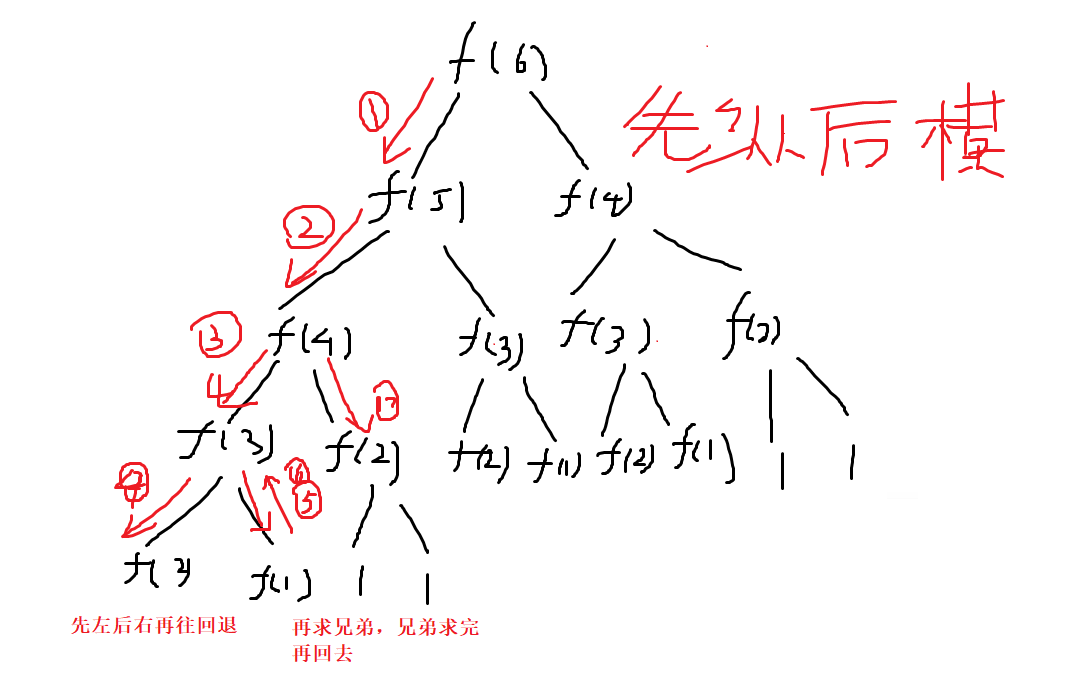 f(6)
先纵后横
①
f(5) f(4)
②
③ f(4) f(3) f(3) f(2)
f(3) f(2) f(2) f(1) f(2) f(1) 1 1
④ ⑥
⑤
f(2) f(1) 1 1
先左后右再往回退
再求兄弟，兄弟求完
再回去